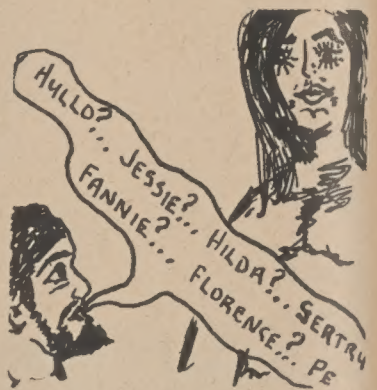 HYLLO?...
JESSIE?... HILDA?... SERTRY
FANNIE?... FLORENCE?... PE